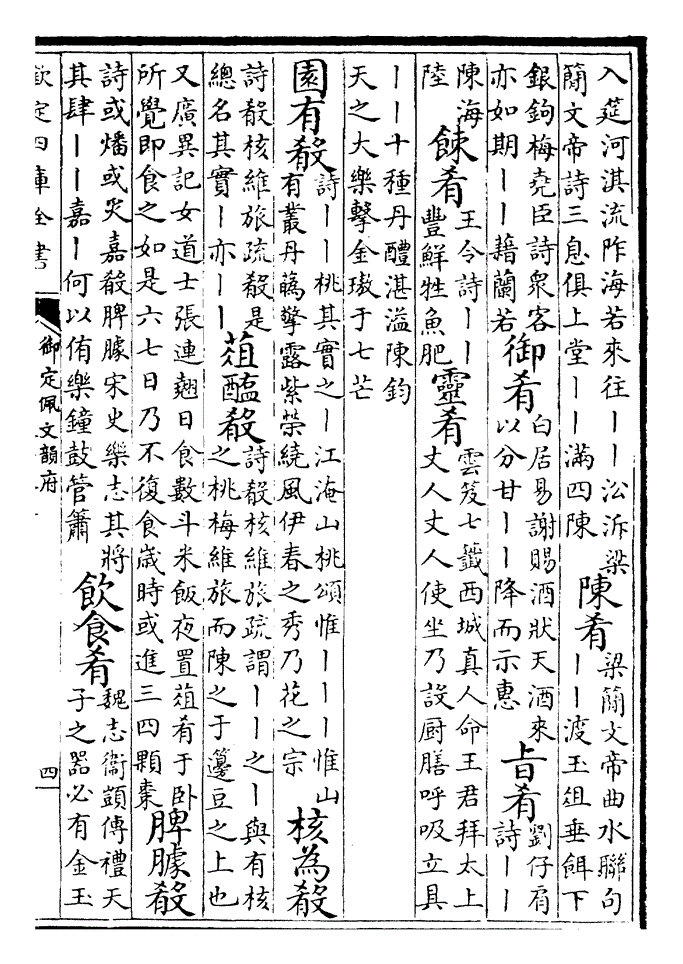 入莚河淇流阼海若來往丨丨沿泝梁
簡文帝詩三息俱上堂丨丨滿四陳
陳肴
梁簡文帝曲水聯句
丨丨渡玉俎垂餌下
銀鉤梅堯臣詩衆客
亦如期丨丨藉蘭若
御肴
白居易謝賜酒狀天酒來
以分甘丨丨降而示惠
旨肴
劉仔肩
詩丨丨
陳海
陸
餗肴
王令詩丨丨
豐鮮牲魚肥
靈肴
雲笈七籤西城真人命王君拜太上
丈人丈人使坐乃設厨膳呼吸立具
丨丨十種丹醴湛溢陳鈞
天之大樂擊金璈于七芒
園有殽
詩丨丨桃其實之丨江淹山桃頌惟丨丨丨惟山
有叢丹蘤擎露紫榮繞風伊春之秀乃花之宗
核為殽
詩殽核維旅疏殽是
總名其實丨亦丨丨
葅醢殽
詩殽核維旅疏謂丨丨之丨與有核
之桃梅維旅而陳之于籩豆之上也
又廣異記女道士張連翹日食數斗米飯夜置葅肴于卧
所覺即食之如是六七日乃不復食歲時或進三四顆棗
脾臄殽
詩或燔或炙嘉殽脾臄宋史樂志其將
其肆丨丨嘉丨何以侑樂鐘鼓管簫
飲食肴
魏志衞顗傳禮天
子之器必有金玉
欽定四庫全書
御定佩文韻府
四